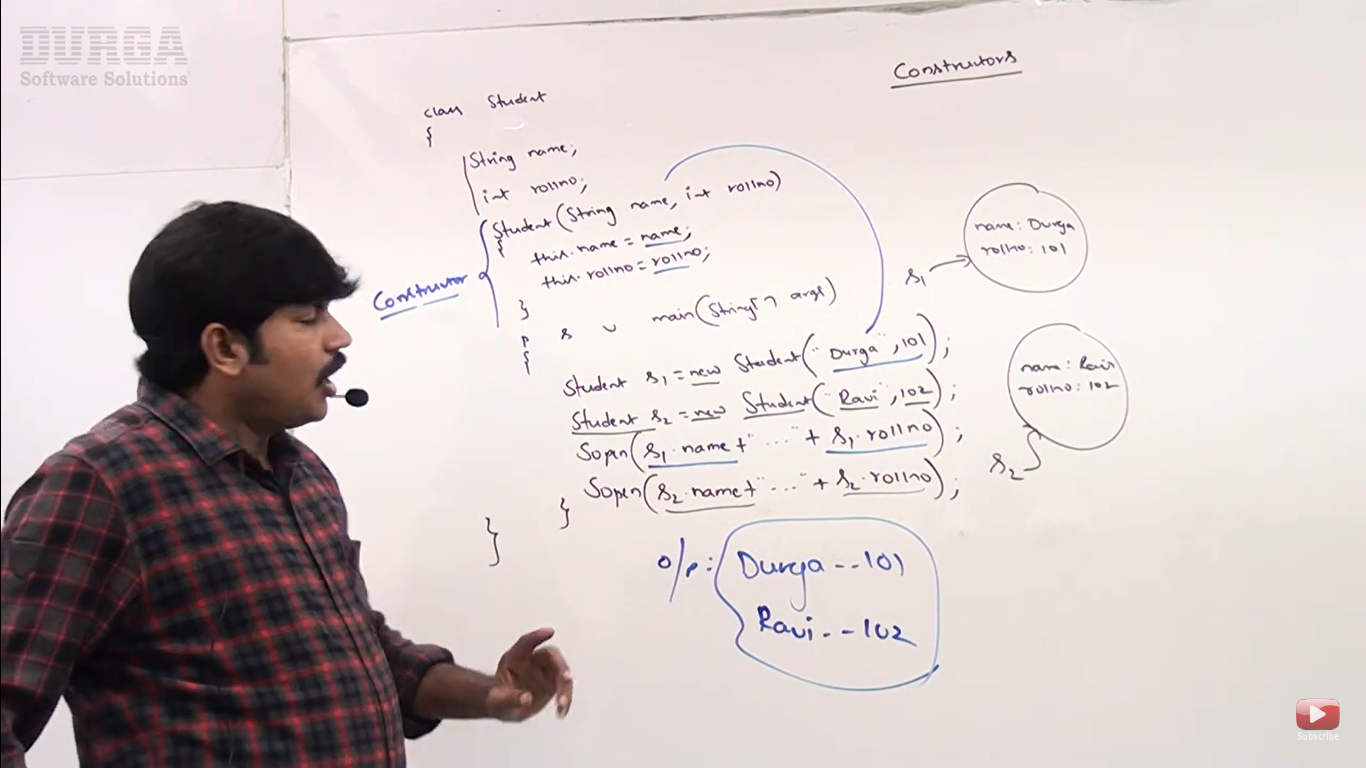 DURGA
Software Solutions
Constructors
class Student
{
String name;
int rollno;
Student(String name, int rollno)
{
this.name = name;
this.rollno = rollno;
}
Constructor
p s v main(String[] args)
{
Student s1 = new Student("Durga", 101);
Student s2 = new Student("Ravi", 102);
Sopln(s1.name+"..."+s1.rollno);
Sopln(s2.name+"..."+s2.rollno);
}
}
o/p: Durga--101
Ravi--102
name: Durga
rollno: 101
s1
name: Ravi
rollno: 102
s2
Subscribe